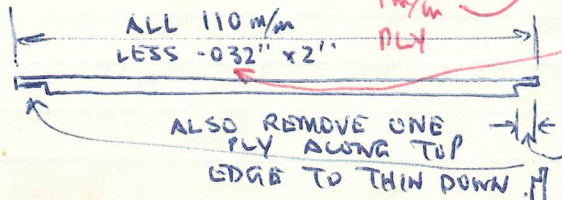 ALL 110 m/m
LESS -032" x 2"
1 m/m
PLY
ALSO REMOVE ONE
PLY ALONG TOP
EDGE TO THIN DOWN